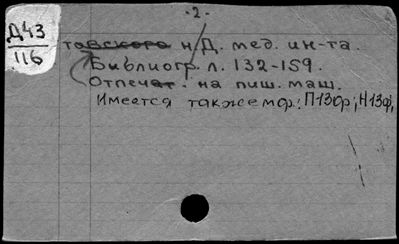 -2-
Д43
116
товского н/Д. мед. ин-та.
Библиогр. л. 132-159.
Отпечат. на пиш. маш.
Имеется также мф.: П130ф; Н13ф;